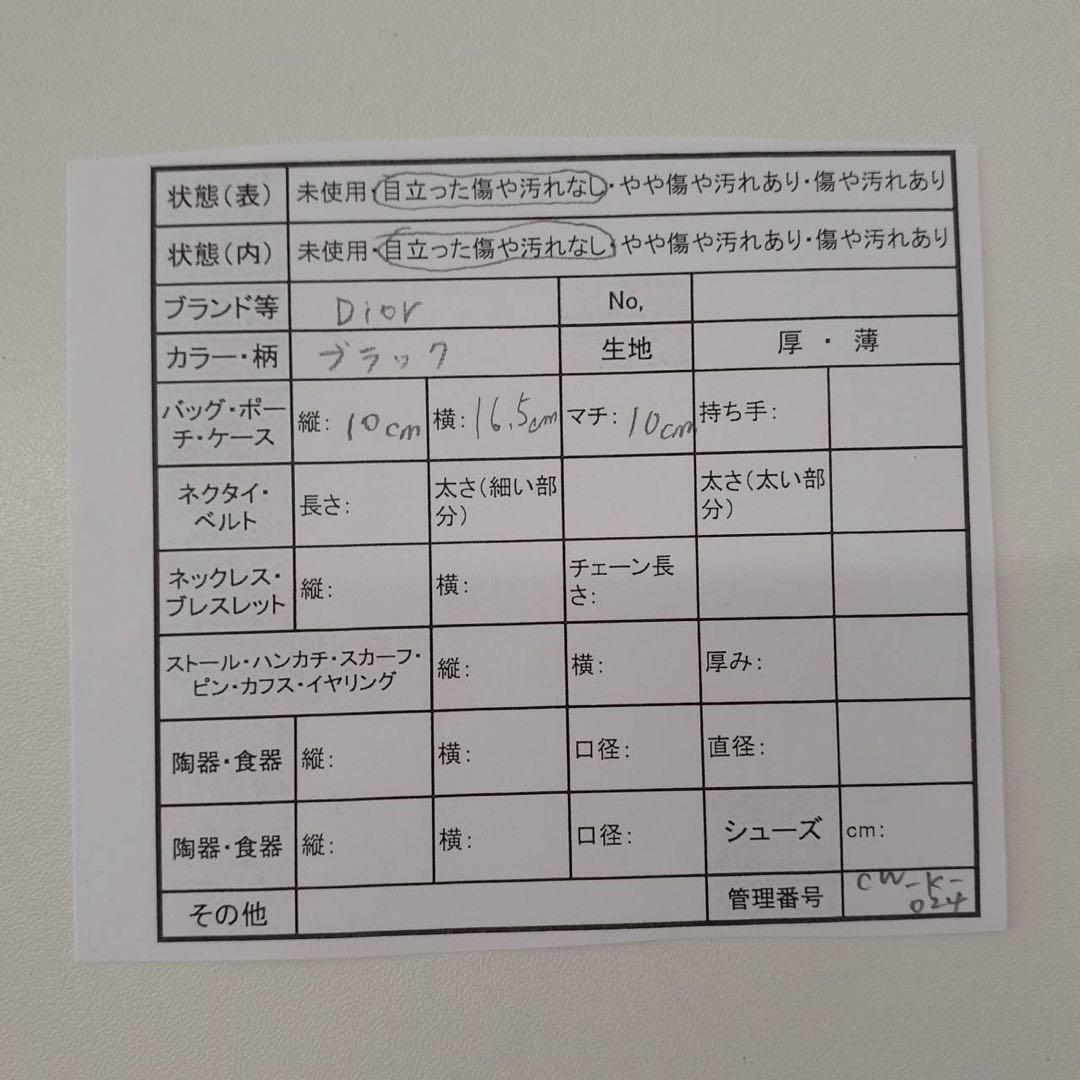 状態(表) 未使用・目立った傷や汚れなし・やや傷や汚れあり・傷や汚れあり
状態(内) 未使用・目立った傷や汚れなし・やや傷や汚れあり・傷や汚れあり
ブランド等 Dior No,
カラー・柄 ブラック 生地 厚・薄
バッグ・ポー
チ・ケース
縦: 10cm 横: 16.5cm マチ: 10cm 持ち手:
ネクタイ・
ベルト
長さ:
太さ(細い部
分)
太さ(太い部
分)
ネックレス・
ブレスレット
縦: 横:
チェーン長
さ:
ストール・ハンカチ・スカーフ・
ピン・カフス・イヤリング
縦: 横: 厚み:
陶器・食器 縦: 横: 口径: 直径:
陶器・食器 縦: 横: 口径: シューズ cm:
その他 管理番号
CW-K-
024